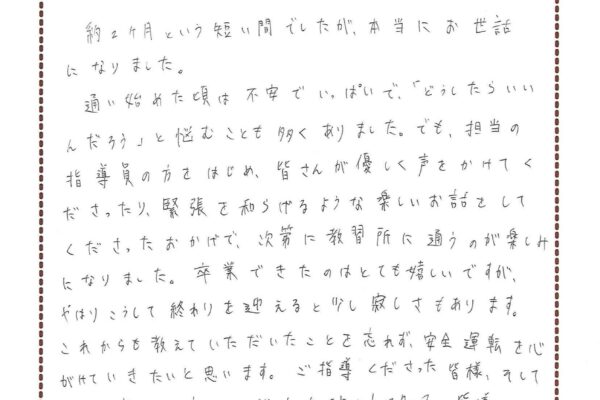 約2ヶ月という短い間でしたが、本当にお世話
になりました。
通い始めた頃は不安でいっぱいで、「どうしたらいい
んだろう」と悩むことも多くありました。でも、担当の
指導員の方をはじめ、皆さんが優しく声をかけてく
ださったり、緊張を和らげるような楽しいお話をして
くださったおかげで、次第に教習所に通うのが楽しみ
になりました。卒業できたのはとても嬉しいですが、
やはりこうして終わりを迎えると少し寂しさもあります。
これからも教えていただいたことを忘れず、安全運転を心
がけていきたいと思います。ご指導くださった皆様、そして